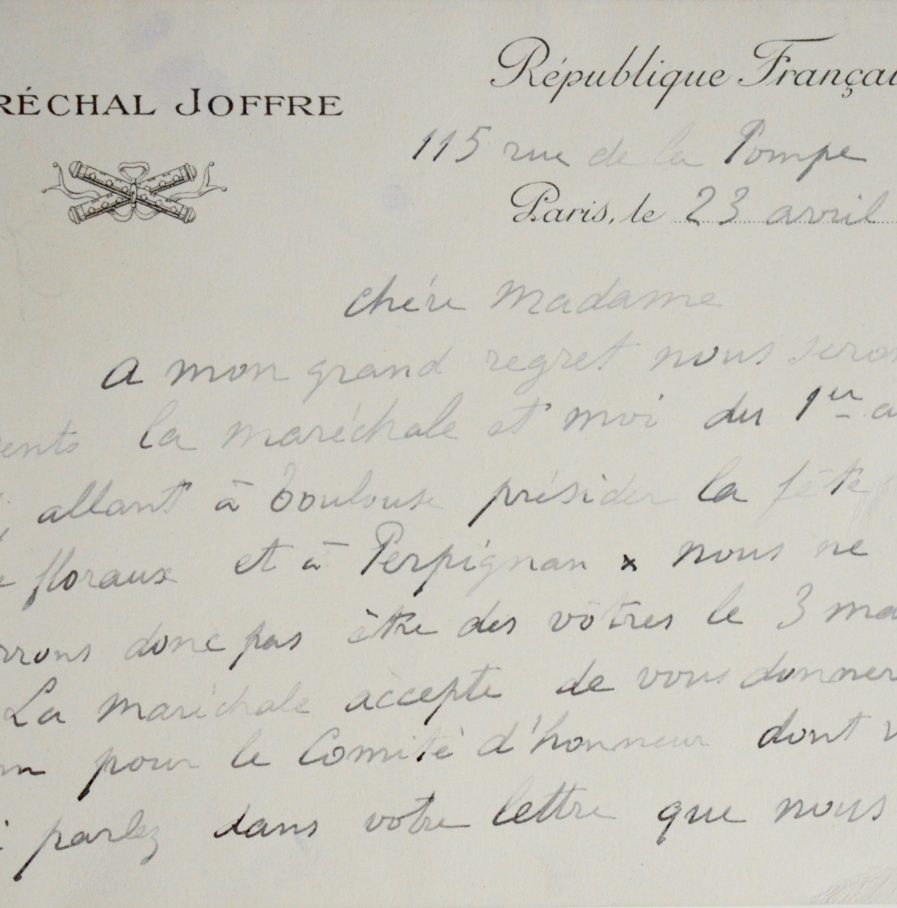 RÉCHAL JOFFRE
République Françai
115 rue de la Pompe
Paris, le 23 avril
Chére Madame
A mon grand regret nous seron
ents la maréchale et moi du 1er a
allant à Toulouse présider la fête
floraux et à Perpignan x nous ne
rrons donc pas être des vôtres le 3 ma
La maréchale accepte de vous donner
m pour le Comité d'honneur dont v
i parlez dans votre lettre que nous